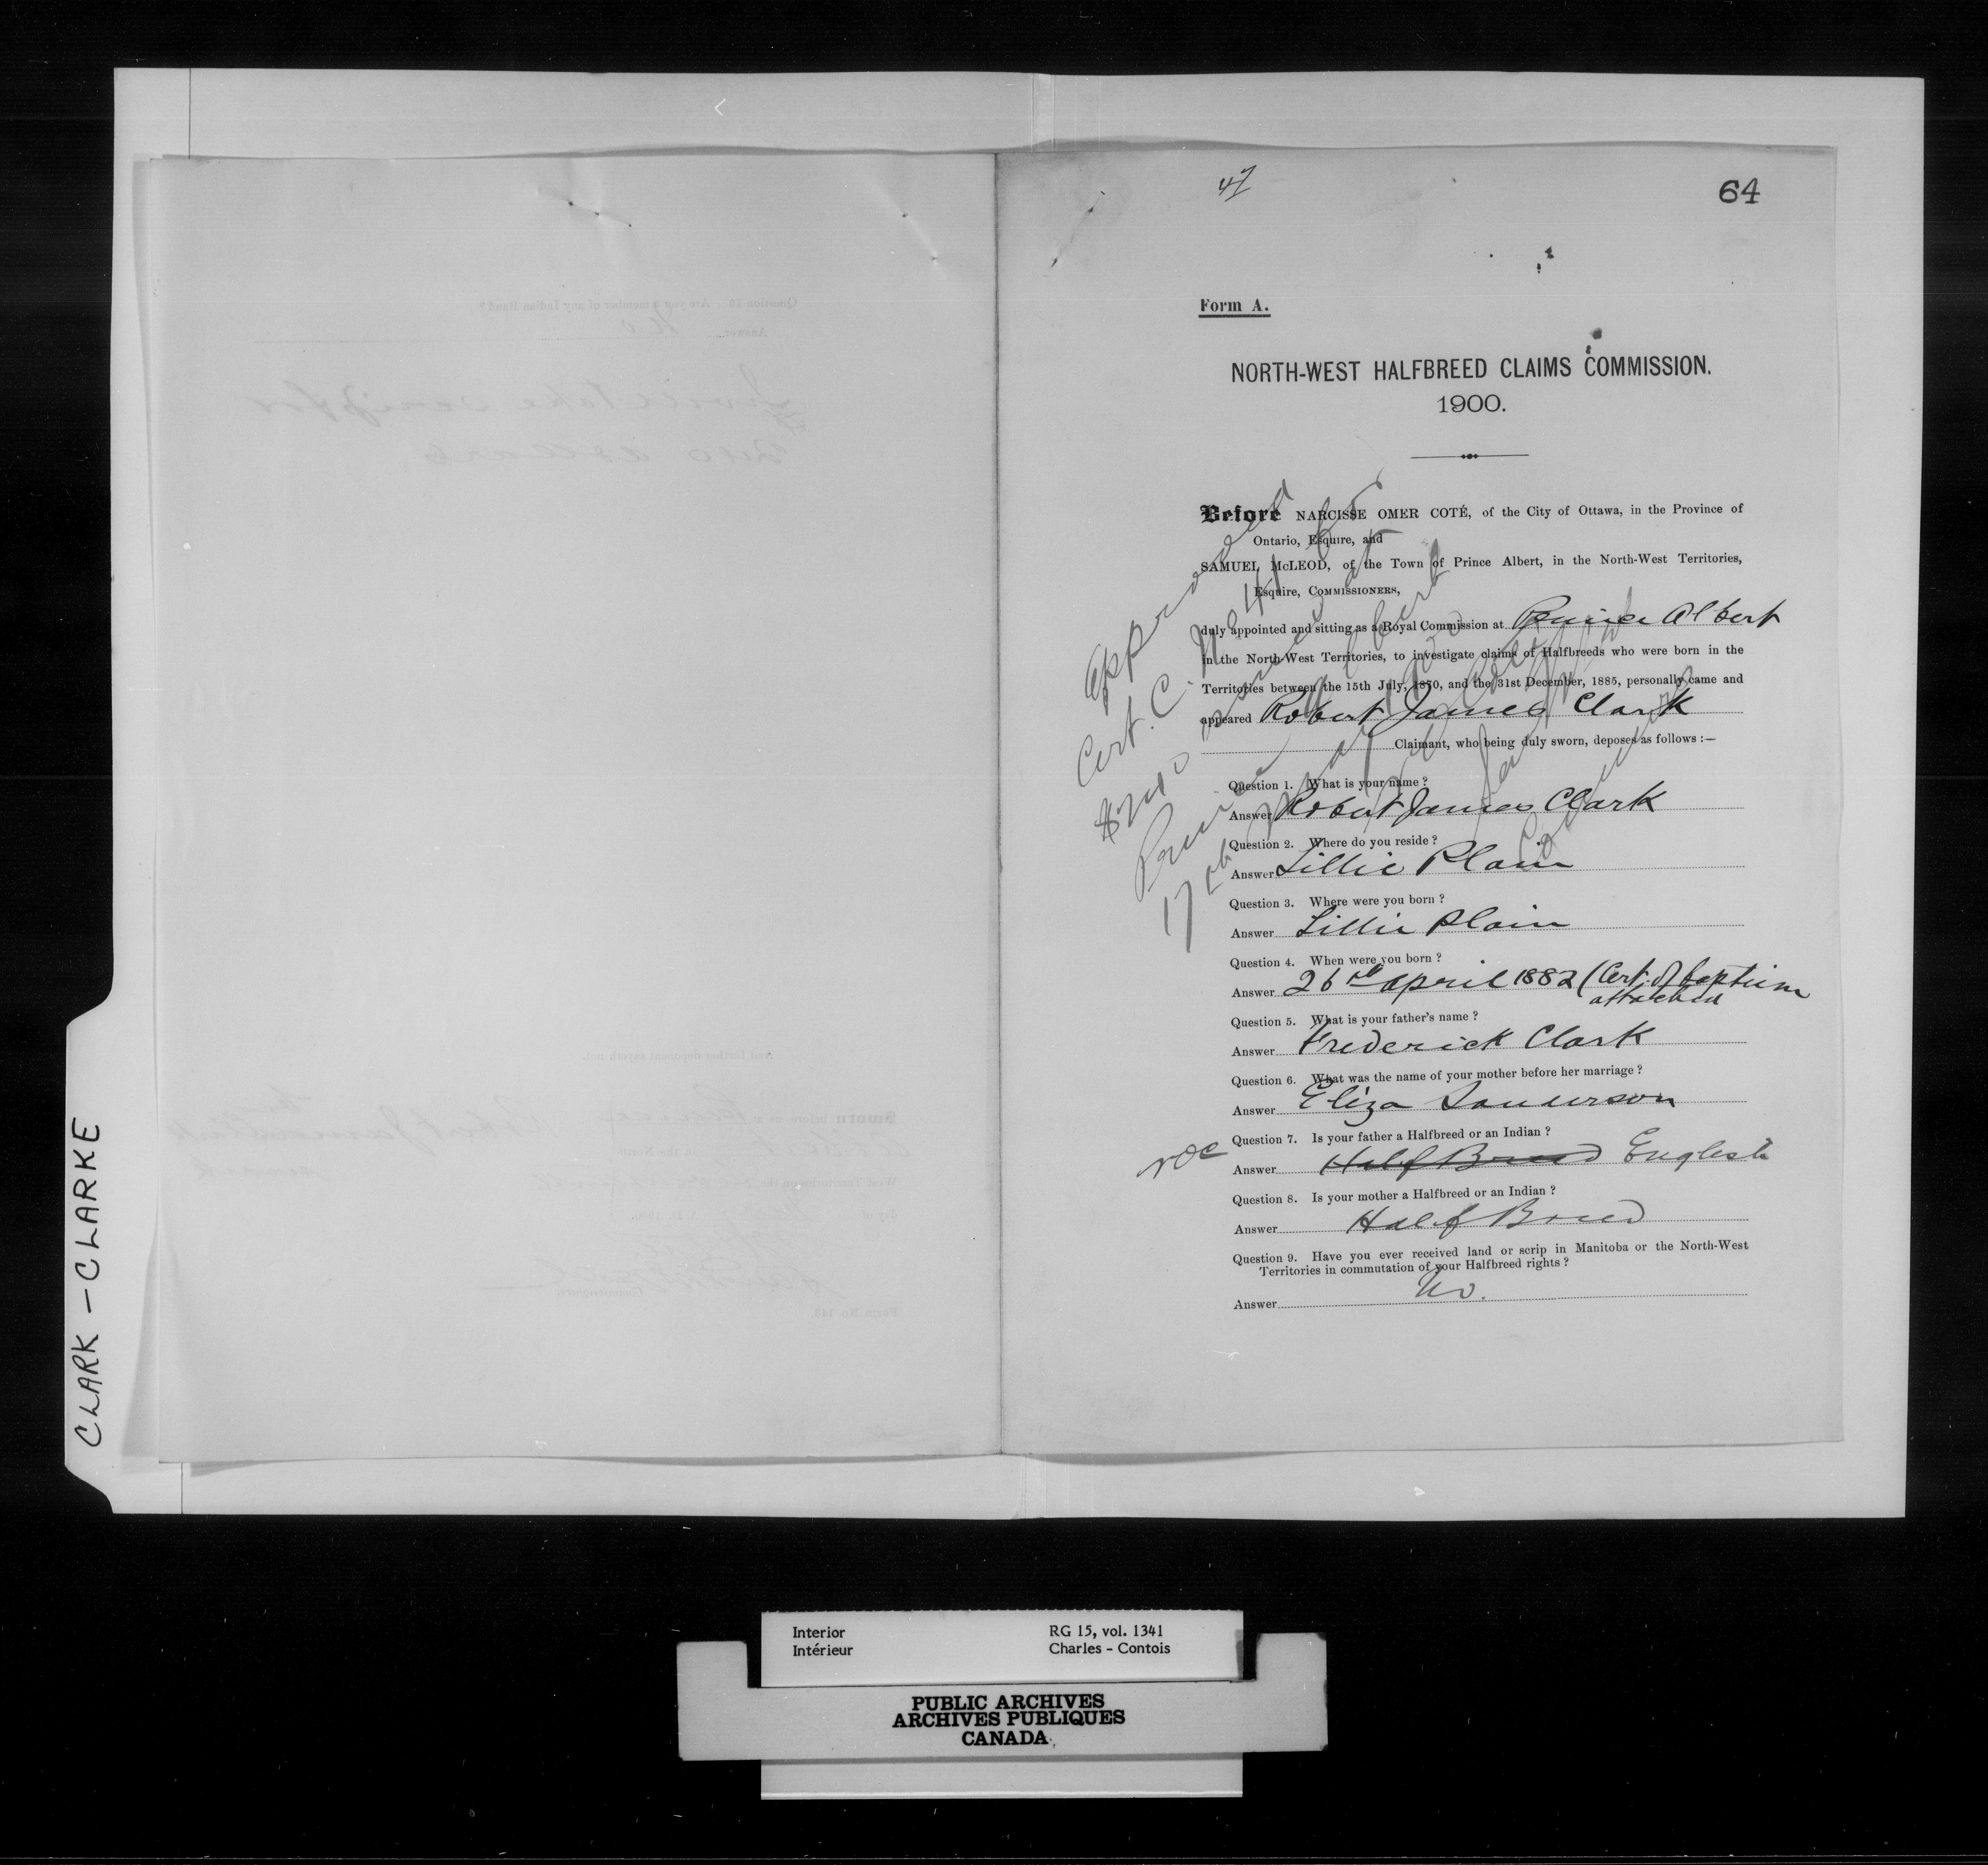 CLARK – CLARKE
47
64
Form A.
NORTH-WEST HALFBREED CLAIMS COMMISSION.
1900.
Before NARCISSE OMER COTÉ, of the City of Ottawa, in the Province of
Ontario, Esquire, and
SAMUEL McLEOD, of the Town of Prince Albert, in the North-West Territories,
Esquire, COMMISSIONERS,
duly appointed and sitting as a Royal Commission at Prince Albert
in the North-West Territories, to investigate claims of Halfbreeds who were born in the
Territories between the 15th July, 1870, and the 31st December, 1885, personally came and
appeared Robert James Clark
Claimant, who being duly sworn, deposes as follows :—
Approved
Cert. C. No 41 for
$240 issued at
Prince Albert
17th May 1900
Question 1. What is your name ?
Answer Robert James Clark
Question 2. Where do you reside ?
Answer Lillie Plain
Question 3. Where were you born ?
Answer Lillie Plain
Question 4. When were you born ?
Answer 26th April 1882 (Cert. of baptism
attached
Question 5. What is your father's name ?
Answer Frederick Clark
Question 6. What was the name of your mother before her marriage ?
Answer Eliza Sanderson
Question 7. Is your father a Halfbreed or an Indian ?
NOC Answer Half Breed English
Question 8. Is your mother a Halfbreed or an Indian ?
Answer Half Breed
Question 9. Have you ever received land or scrip in Manitoba or the North-West
Territories in commutation of your Halfbreed rights ?
Answer No.
Interior RG 15, vol. 1341
Intérieur Charles – Contois
PUBLIC ARCHIVES
ARCHIVES PUBLIQUES
CANADA